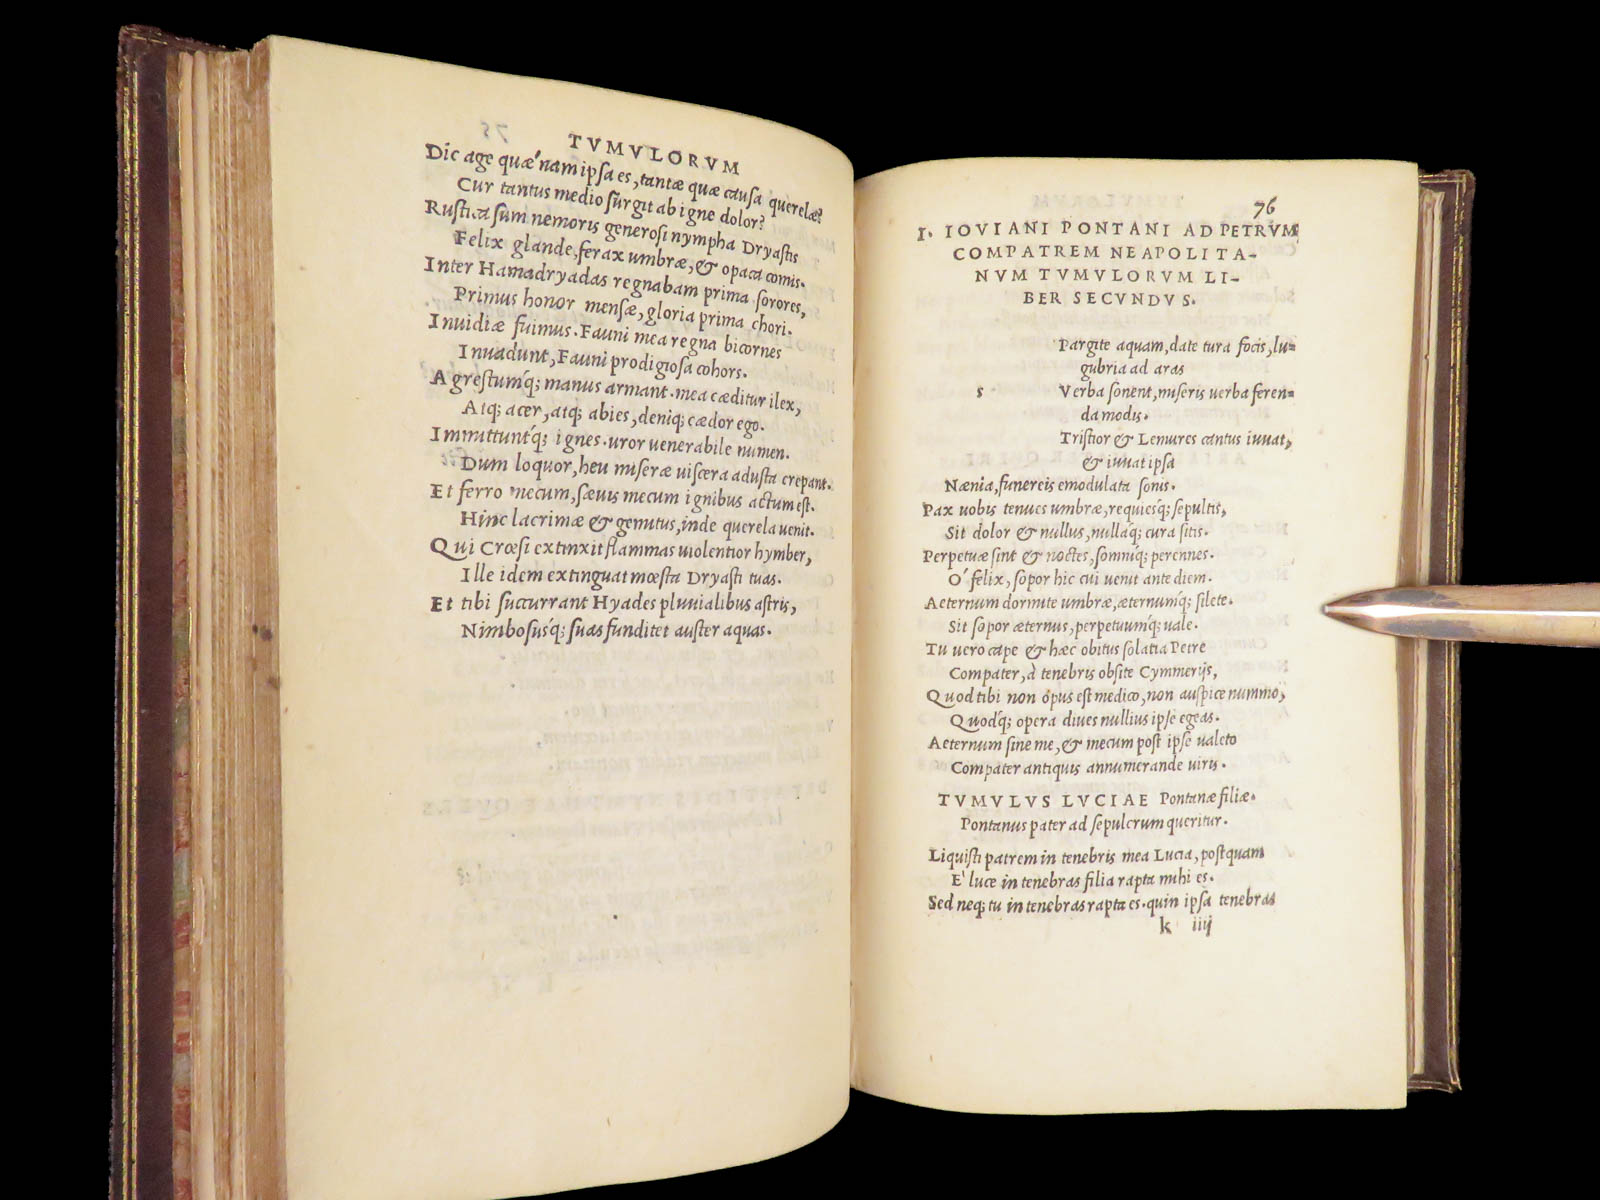 TVMVLORVM
Dic age quæ'nam ipsa es, tantæ quæ causa querelæ?
Cur tantus medio surgit ab igne dolor?
Rustica sum nemoris generosi nympha Dryastis
Felix glande, ferax umbræ, & opaca comis.
Inter Hamadryadas regnabam prima sorores,
Primus honor mensæ, gloria prima chori.
Inuidiæ fuimus. Fauni mea regna bicornes
Inuadunt, Fauni prodigiosa cohors.
Agrestumq́; manus armant. mea cæditur ilex,
Atq; acer, atq; abies, deniq; cædor ego.
Immittuntq́; ignes. uror uenerabile numen.
Dum loquor, heu miseræ uiscera adusta crepant.
Et ferro mecum, sæuis mecum ignibus actum est.
Hinc lacrimæ & gemitus, inde querela uenit.
Qui Crœsi extinxit flammas uiolentior hymber,
Ille idem extinguat mœsta Dryasti tuas.
Et tibi succurrant Hyades pluuialibus astris,
Nimbosusq́; suas funditet auster aquas.
76
I. IOVIANI PONTANI AD PETRVM
COMPATREM NEAPOLITA-
NVM TVMVLORVM LI-
BER SECVNDVS.
Pargite aquam, date tura focis, lu=
gubria ad aras
s Verba sonent, miseris uerba feren=
da modis.
Tristior & Lemures cantus iuuat,
& iuuat ipsa
Nænia, funereis emodulata sonis.
Pax uobis tenues umbræ, requiesq́; sepultis,
Sit dolor & nullus, nullaq́; cura sitis.
Perpetuæ sint & noctes, somniq́; perennes.
O' felix, sopor hic cui uenit ante diem.
Aeternum dormite umbræ, æternumq́; silete.
Sit sopor æternus, perpetuumq́; uale.
Tu uero cape & hæc obitus solatia Petre
Compater, à tenebris obsite Cymmerijs,
Quod tibi non opus est medico, non auspice nummo,
Quodq́; opera diues nullius ipse egeas.
Aeternum sine me, & mecum post ipse ualeto
Compater antiquis annumerande uiris.
TVMVLVS LVCIAE Pontanæ filiæ.
Pontanus pater ad sepulcrum queritur.
Liquisti patrem in tenebris mea Lucia, postquam
E' luce in tenebras filia rapta mihi es.
Sed neq; tu in tenebras rapta es. quin ipsa tenebras
k iiij